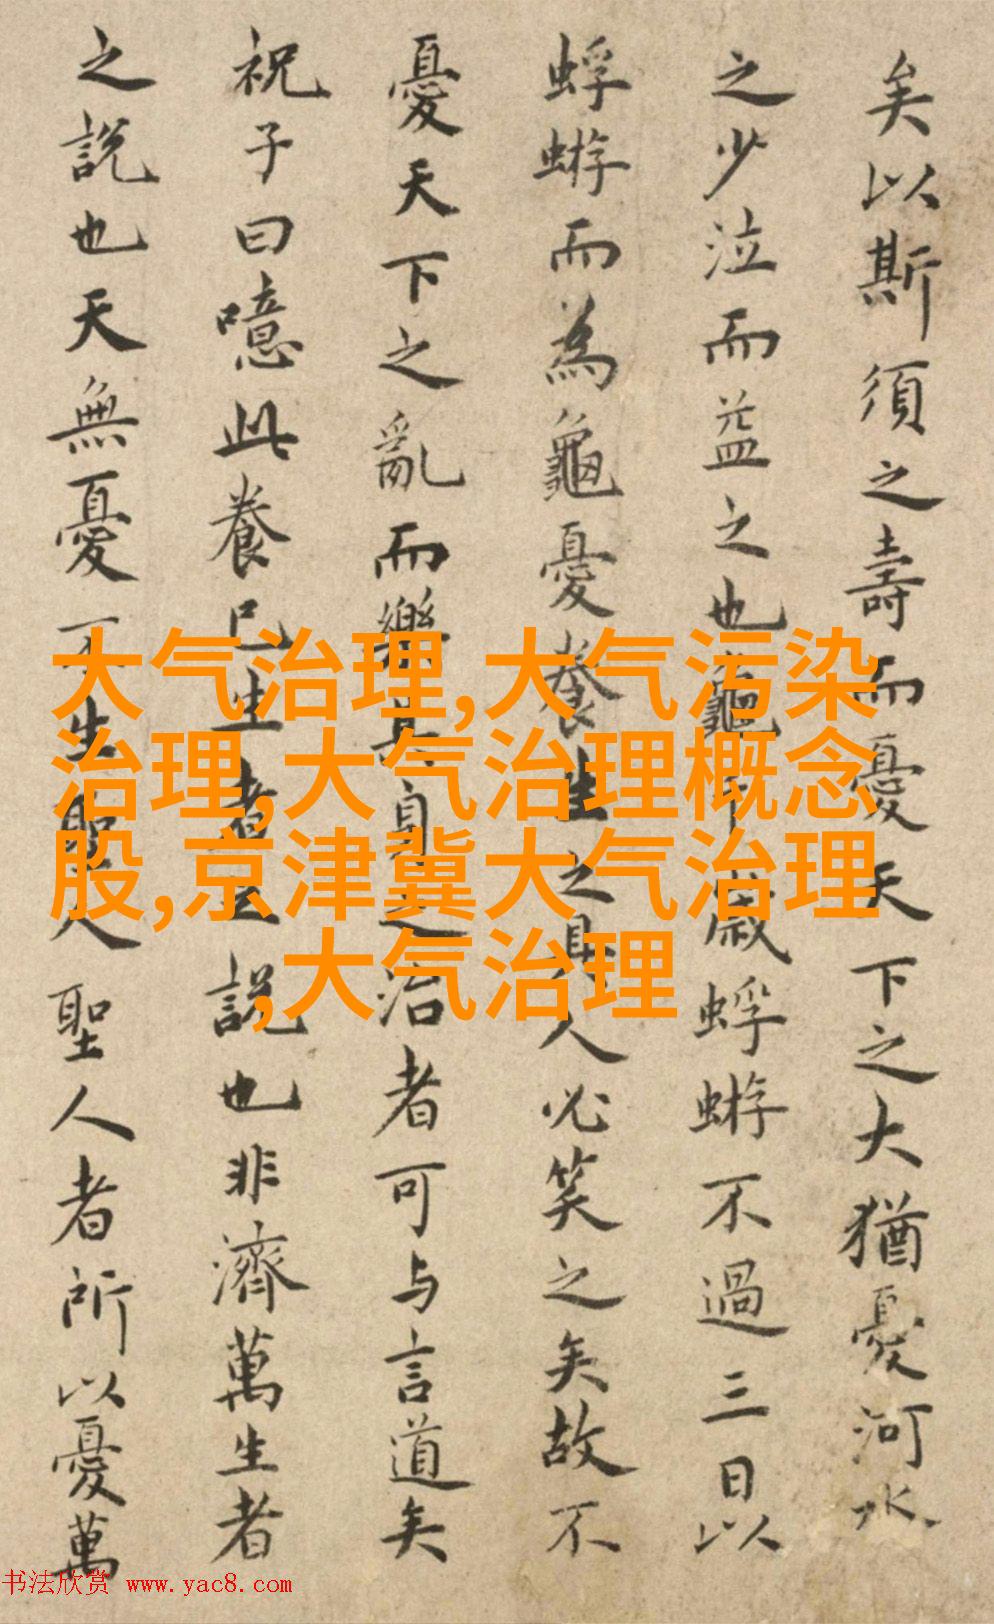 矣以斯須之壽而憂天下之大猶憂河水
之少泣而益之也龜千歲蜉蝣不過三日以
蜉蝣而為龜憂養生之具人必笑之矣故不
憂天下之亂而樂其身之治者可与言道矣
祝子曰噫此養已生者說也非濟萬生者
之說也天無憂不生聖人聖人者所以憂萬
大气治理,大气污染
治理,大气治理概念
股,京津冀大气治理
,大气治理
书法欣赏 www.yac8.com